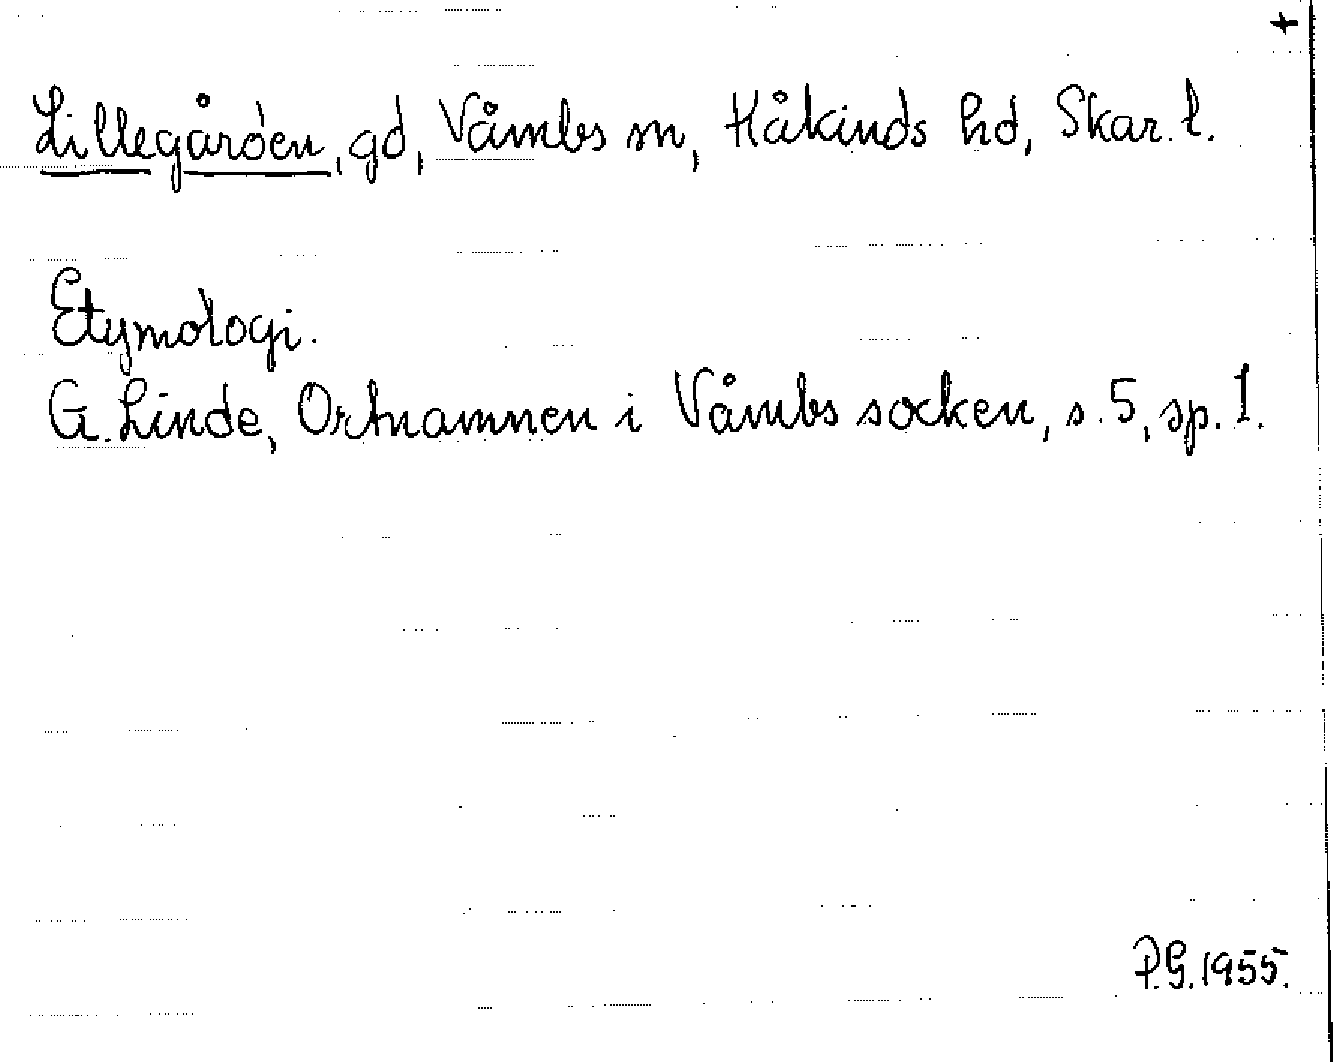 +
Lillegården, gd, Våmbs sn, Håkinds hd, Skar. l.
Etymologi.
G. Linde, Ortnamnen i Våmbs socken, s. 5, sp. 1.
P.G. 1955.